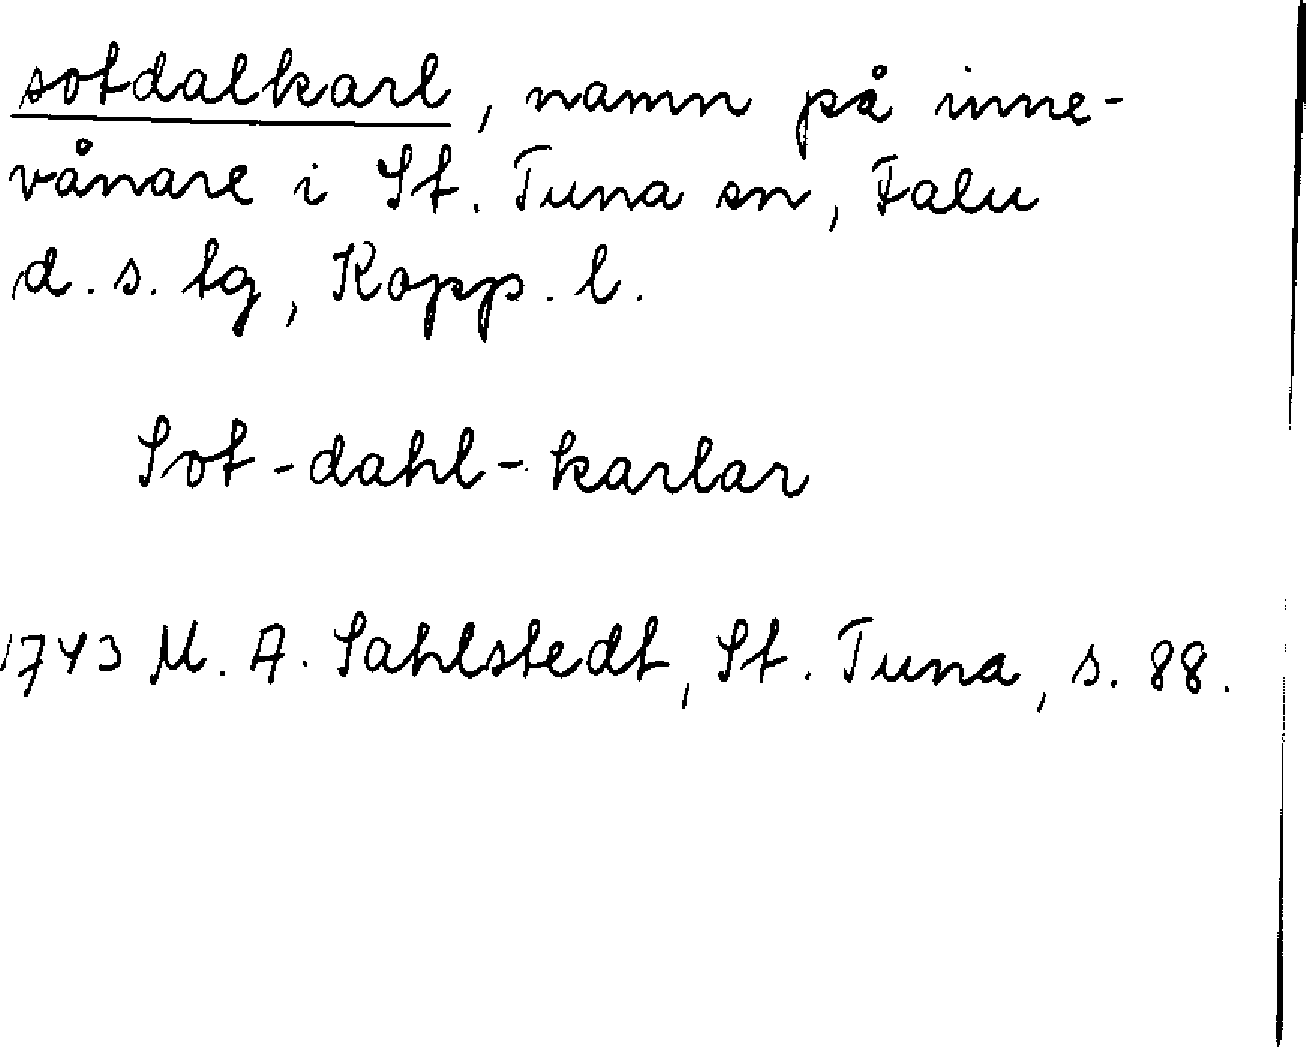 sotdalkarl, namn på inne-
vånare i St. Tuna sn, Falu
d. s. tg, Kopp. l.
Sot-dahl-karlar
1743 M. A. Sahlstedt, St. Tuna, s. 88.